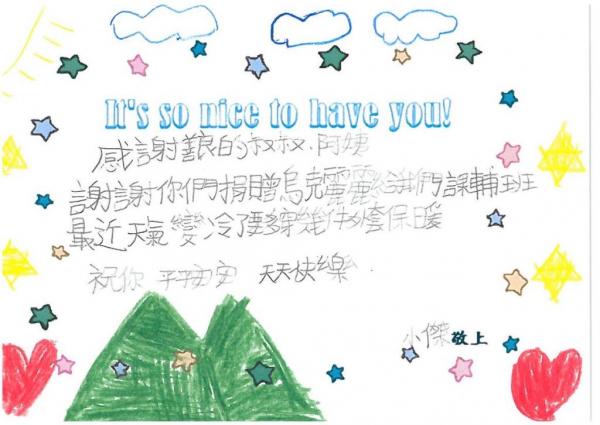 It's so nice to have you!
感謝善良的叔叔.阿姨
謝謝你們捐贈烏克麗麗給我們課輔班
最近天氣變冷了要多穿幾件外套保暖
祝你 平平安安 天天快樂.
小傑敬上